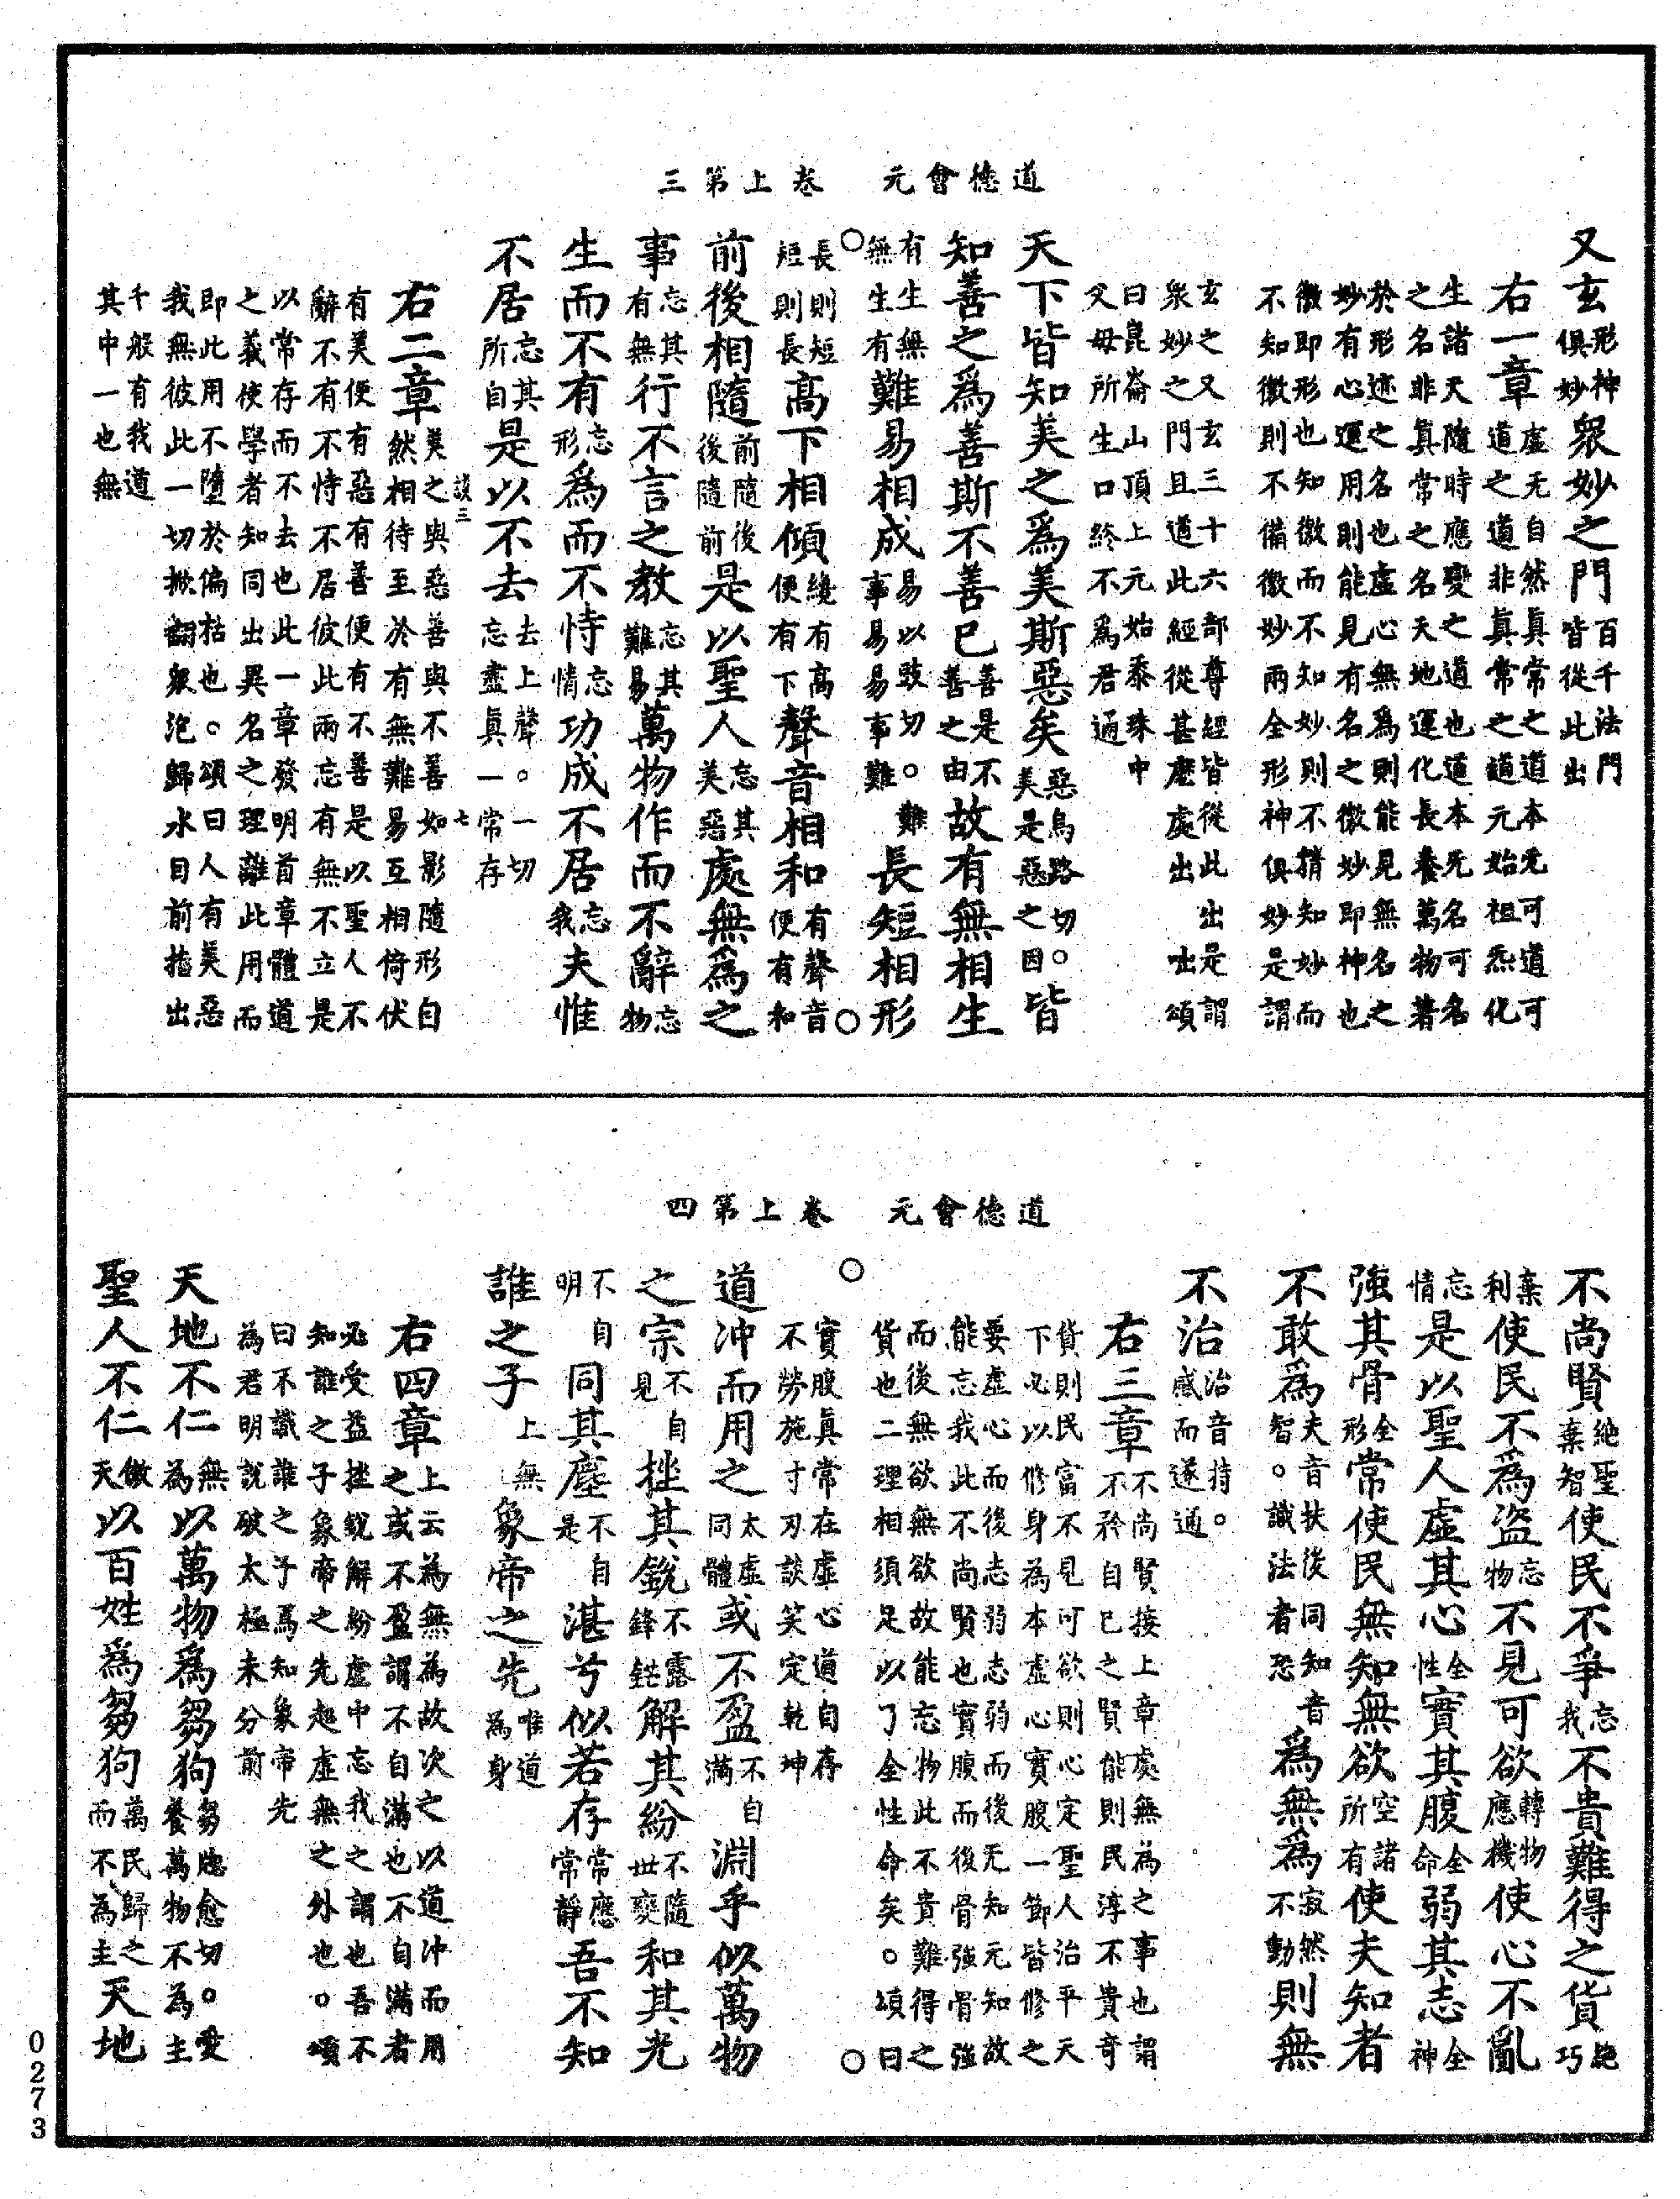 道德會元　卷上第三
又玄形神俱妙衆妙之門百千法門皆從此出
右一章虛无自然眞常之道本无可道可道之道非眞常之道元始祖炁化
生諸天隨時應變之道也道本无名可名之名非眞常之名天地運化長養萬物著
於形迹之名也虛心無爲則能見無名之妙有心運用則能見有名之徼妙即神也
徼即形也知徼而不知妙則不精知妙而不知徼則不備徼妙兩全形神俱妙是謂
玄之又玄三十六部尊經皆從此出是謂衆妙之門且道此經從甚麽處出咄頌
曰崑崙山頂上元始黍珠中父母所生口終不爲君通
天下皆知美之爲美斯惡矣惡烏路切。美是惡之因皆
知善之爲善斯不善已善是不善之由故有無相生
有生無無生有難易相成易以豉切。難事易易事難長短相形
○長則短短則長高下相傾纔有高便有下聲音相和有聲音便有和○
前後相隨前隨後後隨前是以聖人忘其美惡處無爲之
事忘其有無行不言之教忘其難易萬物作而不辭忘物
生而不有忘形爲而不恃忘情功成不居忘我夫惟
不居忘其所自是以不去去上聲。一切忘盡眞一常存
談三　七
右二章美之與惡善與不善如影隨形自然相待至於有無難易互相倚伏
有美便有惡有善便有不善是以聖人不辭不有不恃不居彼此兩忘有無不立是
以常存而不去也此一章發明首章體道之義使學者知同出異名之理離此用而
即此用不墮於偏枯也。頌曰人有美惡我無彼此一切掀翻衆泡歸水目前指出
千般有我道其中一也無
道德會元　卷上第四
不尚賢絶聖棄智使民不爭忘我不貴難得之貨絶巧
棄利使民不爲盜忘物不見可欲轉物應機使心不亂
忘情是以聖人虛其心全性實其腹全命弱其志全神
強其骨全形常使民無知無欲空諸所有使夫知者
不敢爲夫音扶後同知音智。識法者恐爲無爲寂然不動則無
不治治音持。感而遂通
右三章不尚賢接上章處無為之事也謂不矜自己之賢能則民淳不貴奇
貨則民富不見可欲則心定聖人治平天下必以修身為本虛心實腹一節皆修之
要虛心而後志弱志弱而後无知元知故能忘我此不尚賢也實腹而後骨強骨強
而後無欲無欲故能忘物此不貴難得之貨也二理相須足以了全性命矣。頌曰
○實腹眞常在虛心道自存不勞施寸刃談笑定乾坤○
道冲而用之太虛同體或不盈不自滿淵乎似萬物
之宗不自見挫其銳不露鋒鋩解其紛不隨世變和其光
不自明同其塵不自是湛兮似若存常應常靜吾不知
誰之子上無象帝之先唯道為身
右四章上云為無為故次之以道冲而用之或不盈謂不自滿也不自滿者
必受益挫銳解紛虛中忘我之謂也吾不知誰之子象帝之先超虛無之外也。頌
曰不識誰之子焉知象帝先為君明說破太極未分前
天地不仁無為以萬物爲芻狗芻牕愈切。愛養萬物不為主
聖人不仁倣天以百姓爲芻狗萬民歸之而不為主天地
0273